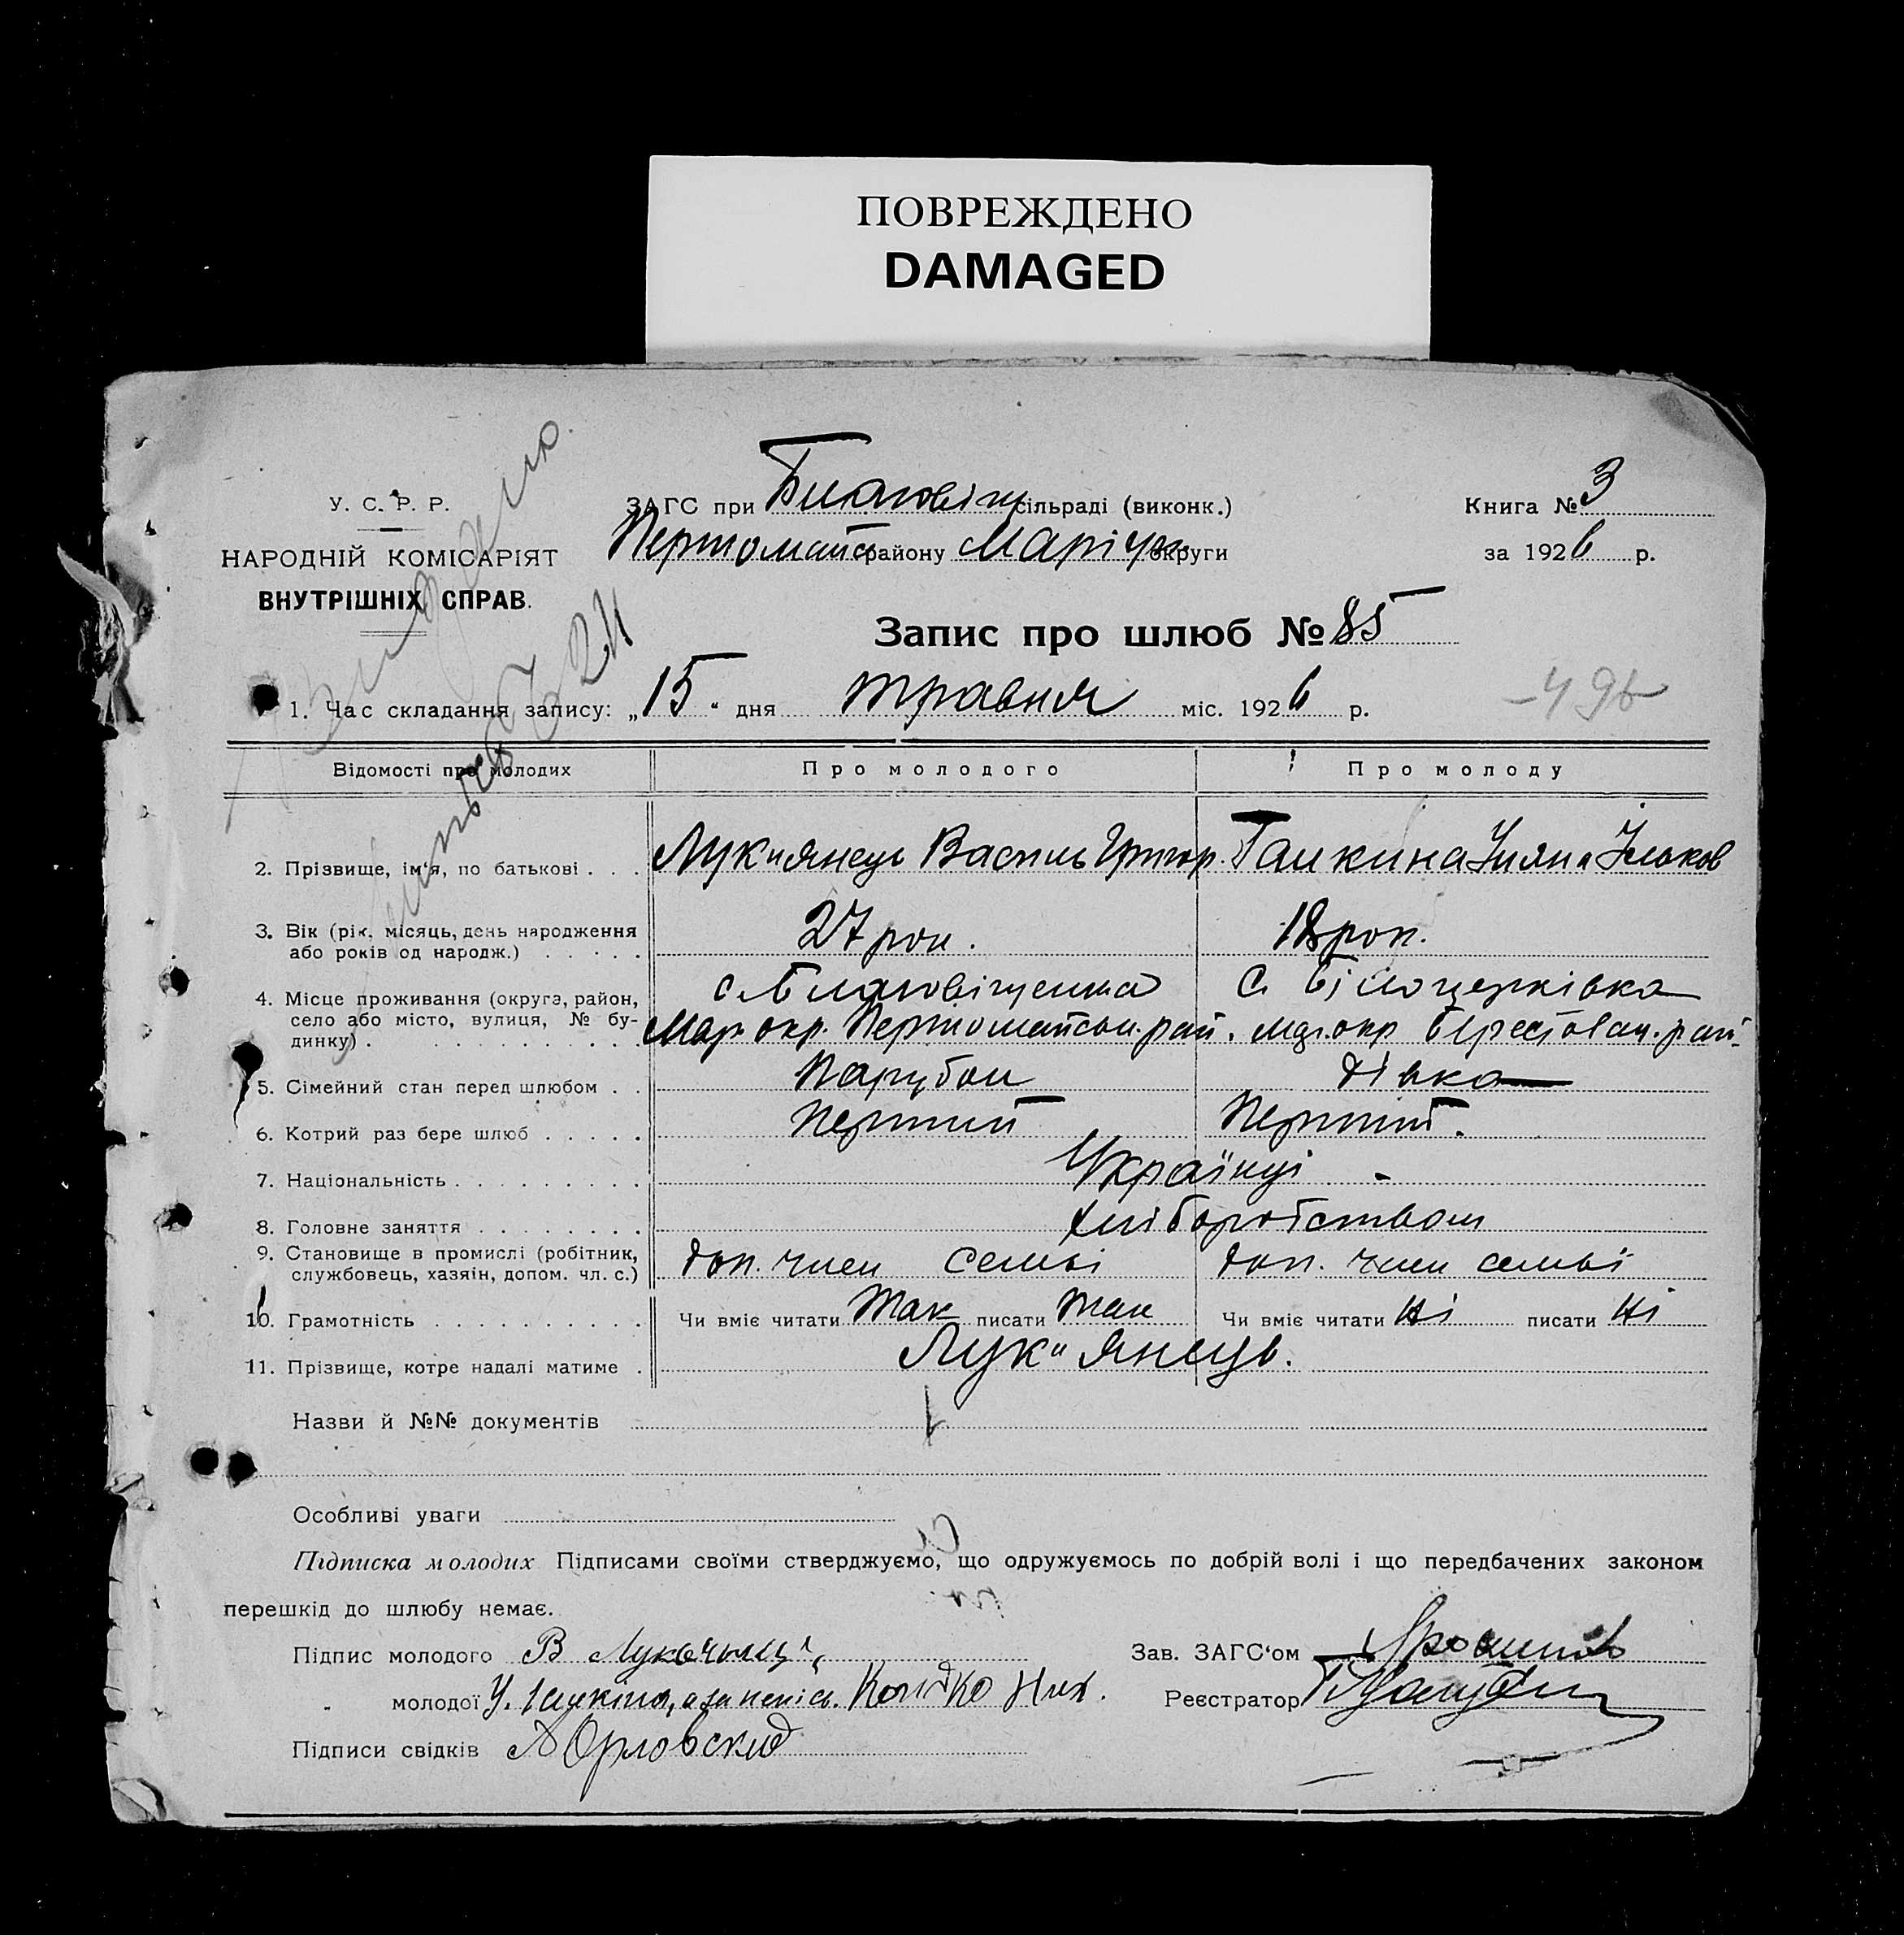 ПОВРЕЖДЕНО
DAMAGED
У. С. Р. Р.
НАРОДНІЙ КОМІСАРІЯТ
ВНУТРІШНІХ СПРАВ.
ЗАГС при Благовіщ сільраді (виконк.)
Первомайс району Маріуп округи
Книга № 3
за 1926 р.
Видано
Запис про шлюб № 85
1. Час складання запису: „15“ дня травня міс. 1926 р.
-496
Відомості про молодих Про молодого Про молоду
2. Прізвище, ім‘я, по батькові . . . Лук"янець Василь Григор. Галкина Уляна Ільков
3. Вік (рік, місяць, день народження
або років од народж.) . . . . . 27 рок. 18 рок.
4. Місце проживання (округа, район,
село або місто, вулиця, № бу-
динку) . . . . . . . . . .
с. Благовіщенка
Мар. окр. Первомайськ. рай.
с. Білоцерківка
Мар. окр Берестовач. рай.
5. Сімейний стан перед шлюбом . . Парубок дівка
6. Котрий раз бере шлюб . . . . . Перший Перший.
7. Національність . . . . . . . . . Українці
8. Головне заняття . . . . . . . . хліборобством
9. Становище в промислі (робітник,
службовець, хазяін, допом. чл. с.) доп. член семьі доп. член семьї
10. Грамотність . . . . . . . . . . Чи вміє читати Так писати так Чи вміє читати Ні писати Ні
11. Прізвище, котре надалі матиме . Лук"янець.
Назви й №№ документів
Особливі уваги
Підписка молодих Підписами своїми стверджуємо, що одружуємось по добрій волі і що передбачених законом
перешкід до шлюбу немає.
Підпис молодого В Лукочынц
Зав. ЗАГС‘ом
" молодої У. Галкіна, а за непісь.
Реєстратор
Підписи свідків А Орловский